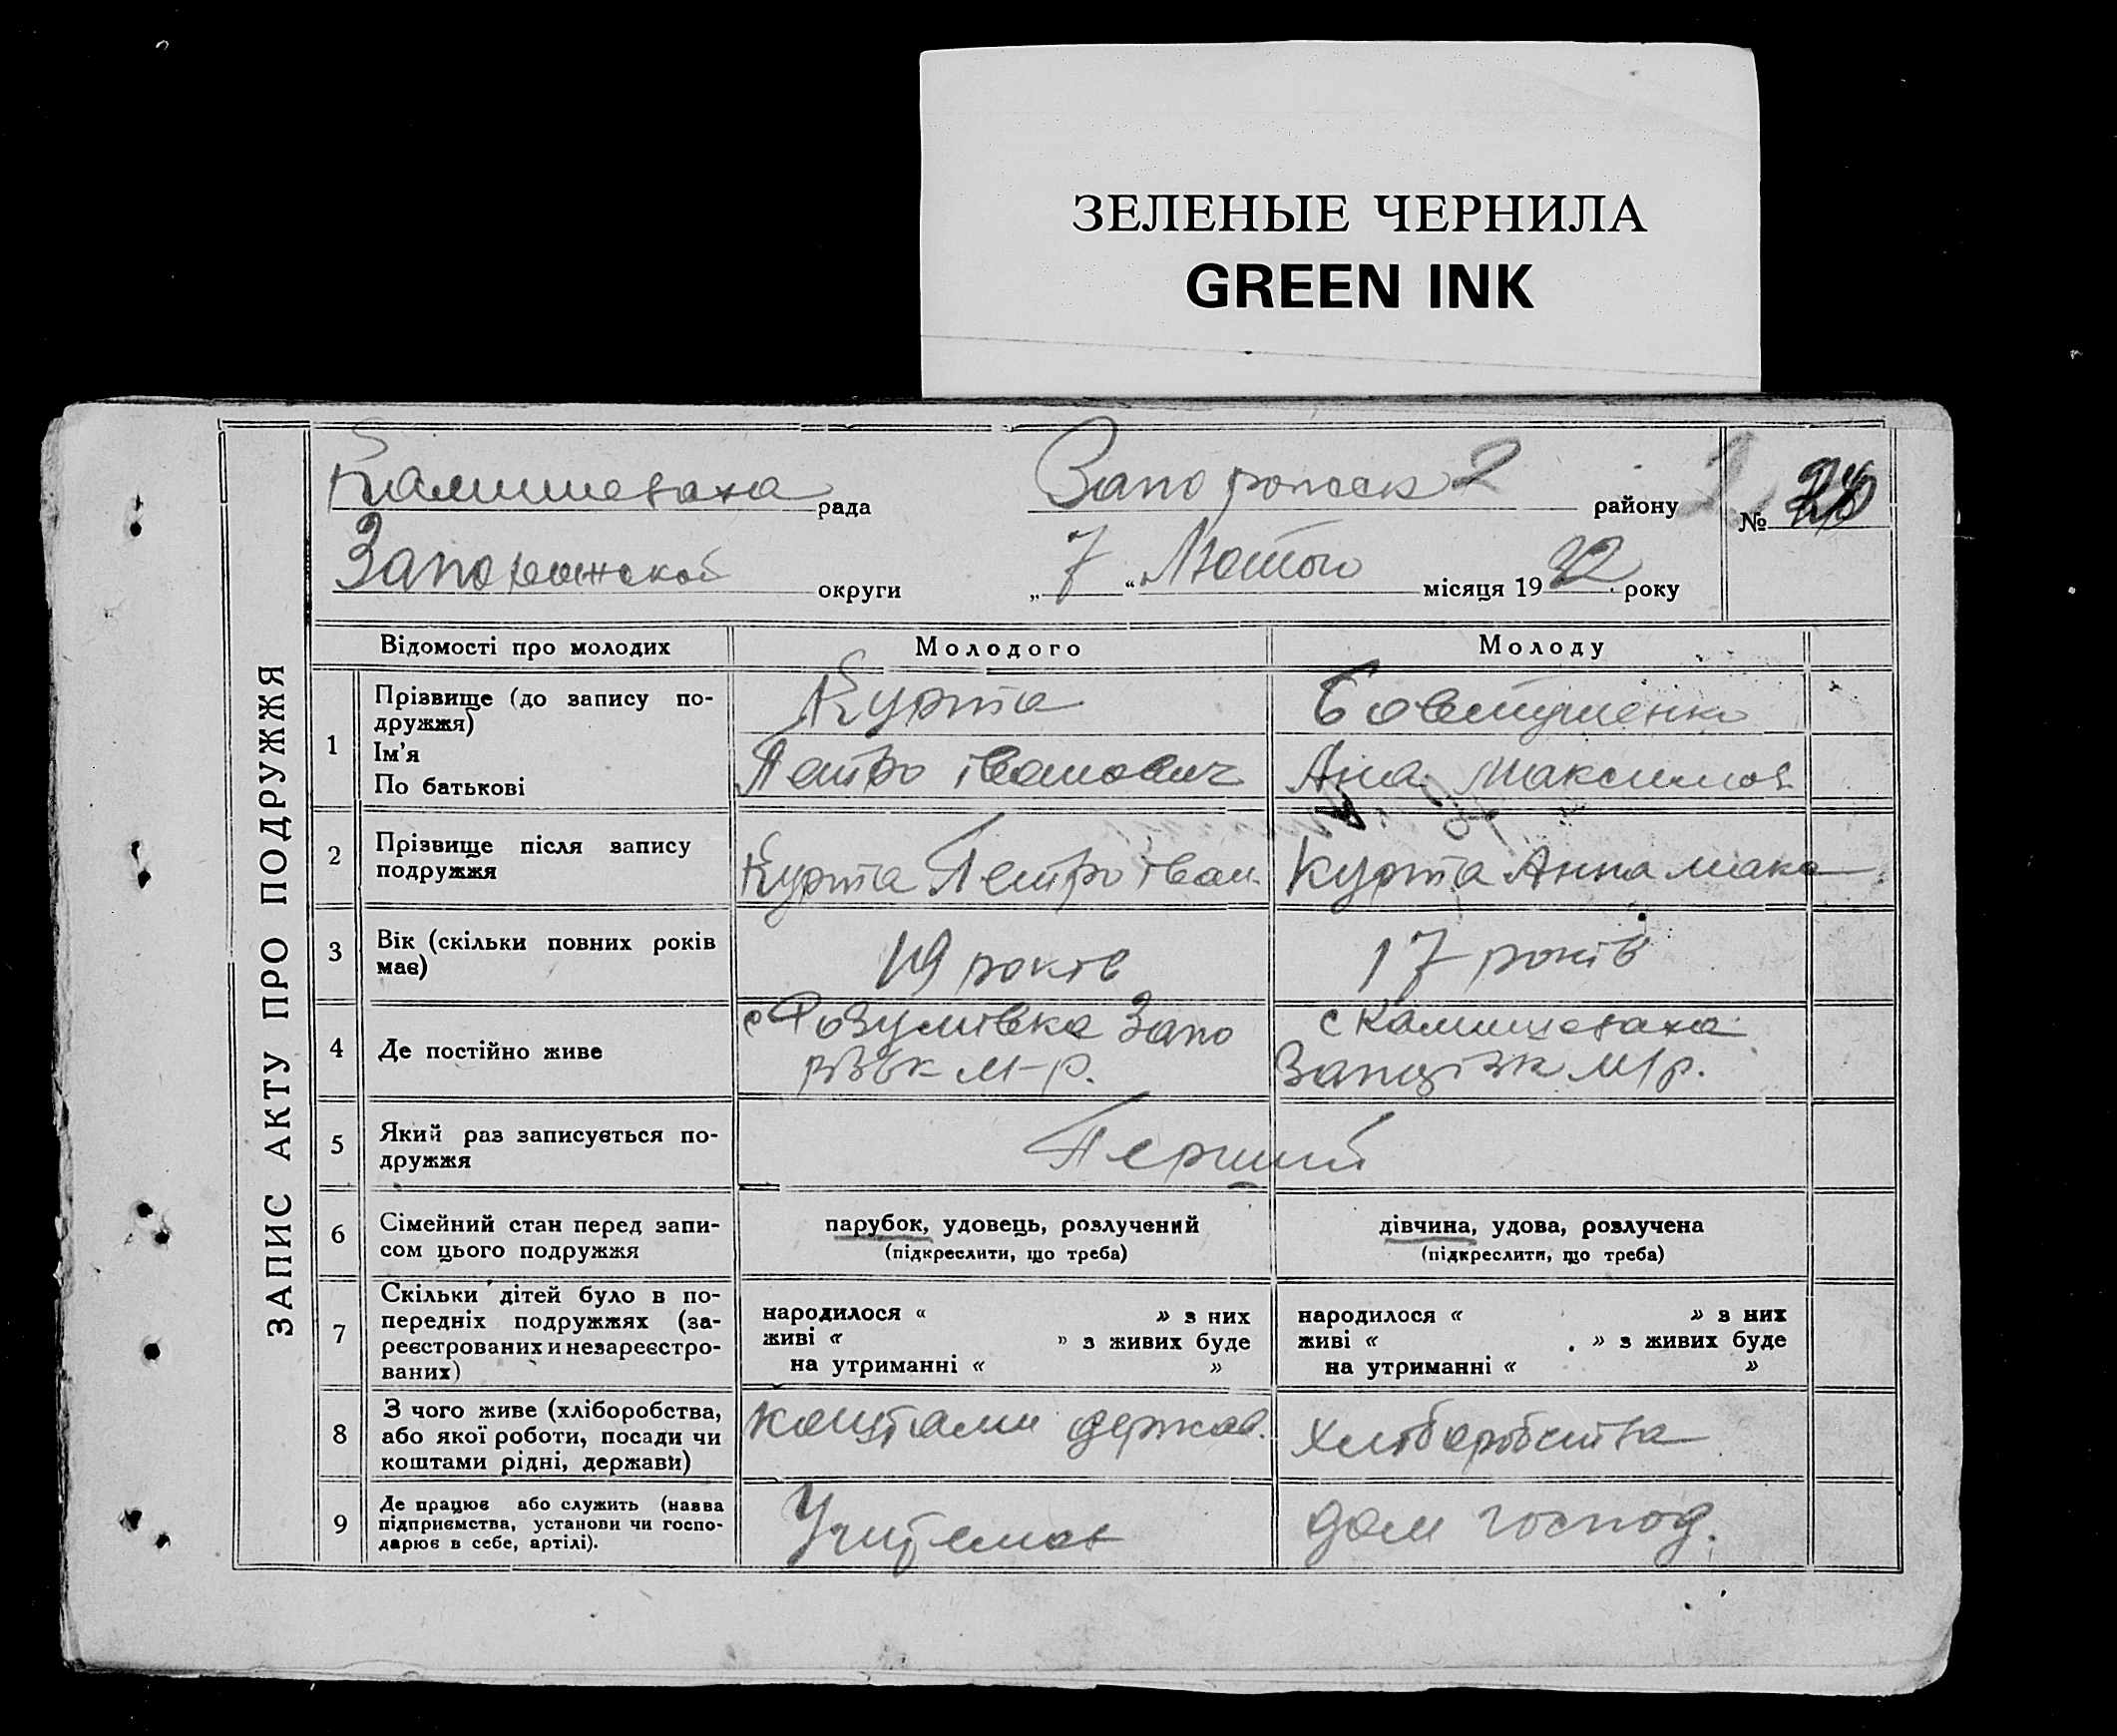 ЗЕЛЕНЫЕ ЧЕРНИЛА
GREEN INK
ЗАПИС АКТУ ПРО ПОДРУЖЖЯ
Камишеваха рада району
№
округи „ 7 “ Лютого місяця 19 32 року
Відомості про молодих Молодого Молоду
1 Прізвище (до запису по-
дружжя)
Ім'я
По батькові
Курта
Петро Іванович
Бовтушенко
Ана Максимов
2 Прізвище після запису
подружжя
Курта Петро Іван.
Курта Анна Макс
3 Вік (скільки повних років
має)
19 років
17 років
4 Де постійно живе
с Розумівка Запо
м-р.
с Камишеваха
м/р.
5 Який раз записується по-
дружжя
Перший
6 Сімейний стан перед запи-
сом цього подружжя
парубок, удовець, розлучений
(підкреслити, що треба)
дівчина, удова, розлучена
(підкреслити, що треба)
7 Скільки дітей було в по-
передніх подружжях (за-
реєстрованих и незареєстро-
ваних)
народилося « » з них
живі « » з живих буде
на утриманні « »
народилося « » з них
живі « » з живих буде
на утриманні « »
8 З чого живе (хліборобства,
або якої роботи, посади чи
коштами рідні, держави)
коштами держав.
хліборобства
9 Де працює або служить (назва
підприємства, установи чи госпо-
дарює в себе, артілі).
дом господ.